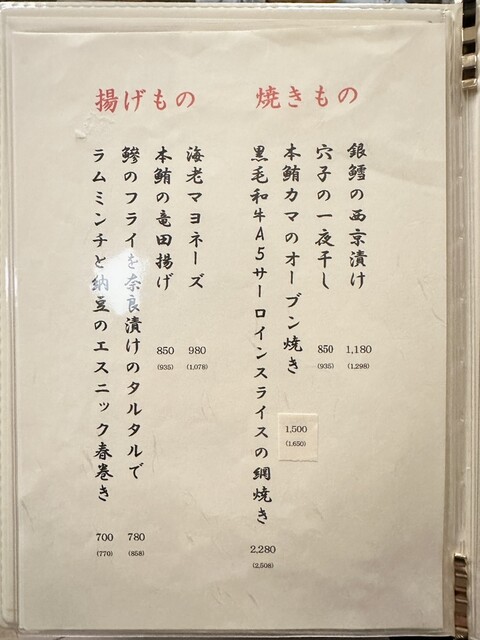 焼きもの
銀鱈の西京漬け
1,180
(1,298)
穴子の一夜干し
850
(935)
本鮪カマのオーブン焼き
1,500
(1,650)
黒毛和牛A5サーロインスライスの網焼き
2,280
(2,508)
揚げもの
海老マヨネーズ
980
(1,078)
本鮪の竜田揚げ
850
(935)
鰺のフライを奈良漬けのタルタルで
780
(858)
ラムミンチと納豆のエスニック春巻き
700
(770)